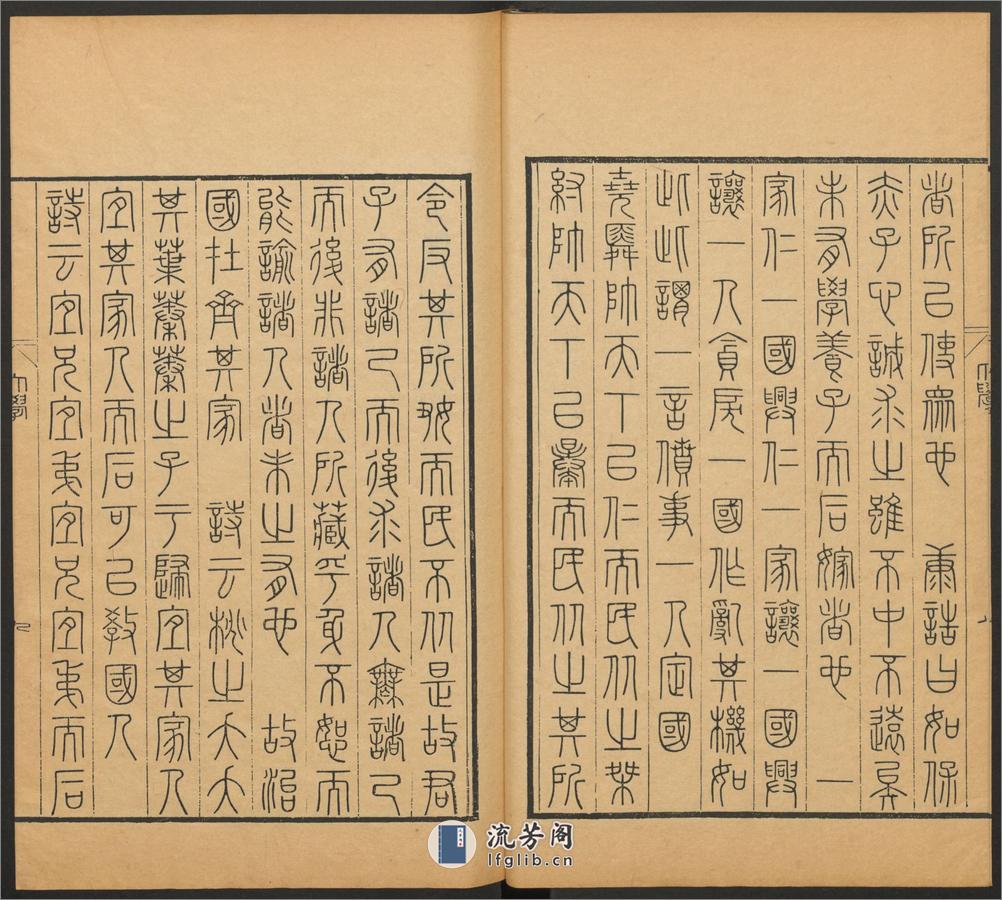 者所以使眾也　康誥曰如保
赤子心誠求之雖不中不遠矣
未有學養子而后嫁者也　一
家仁一國興仁一家讓一國興
讓一人貪戾一國作亂其機如
此此謂一言僨事一人定國
堯舜帥天下以仁而民從之桀
紂帥天下以暴而民從之其所
令反其所好而民不從是故君
子有諸己而後求諸人無諸己
而後非諸人所藏乎身不恕而
能諭諸人者未之有也　故治
國在齊其家　詩云桃之夭夭
其葉蓁蓁之子于歸宜其家人
宜其家人而后可以教國人
詩云宜兄宜弟宜兄宜弟而后
大學
九
流芳阁
lfglib.cn